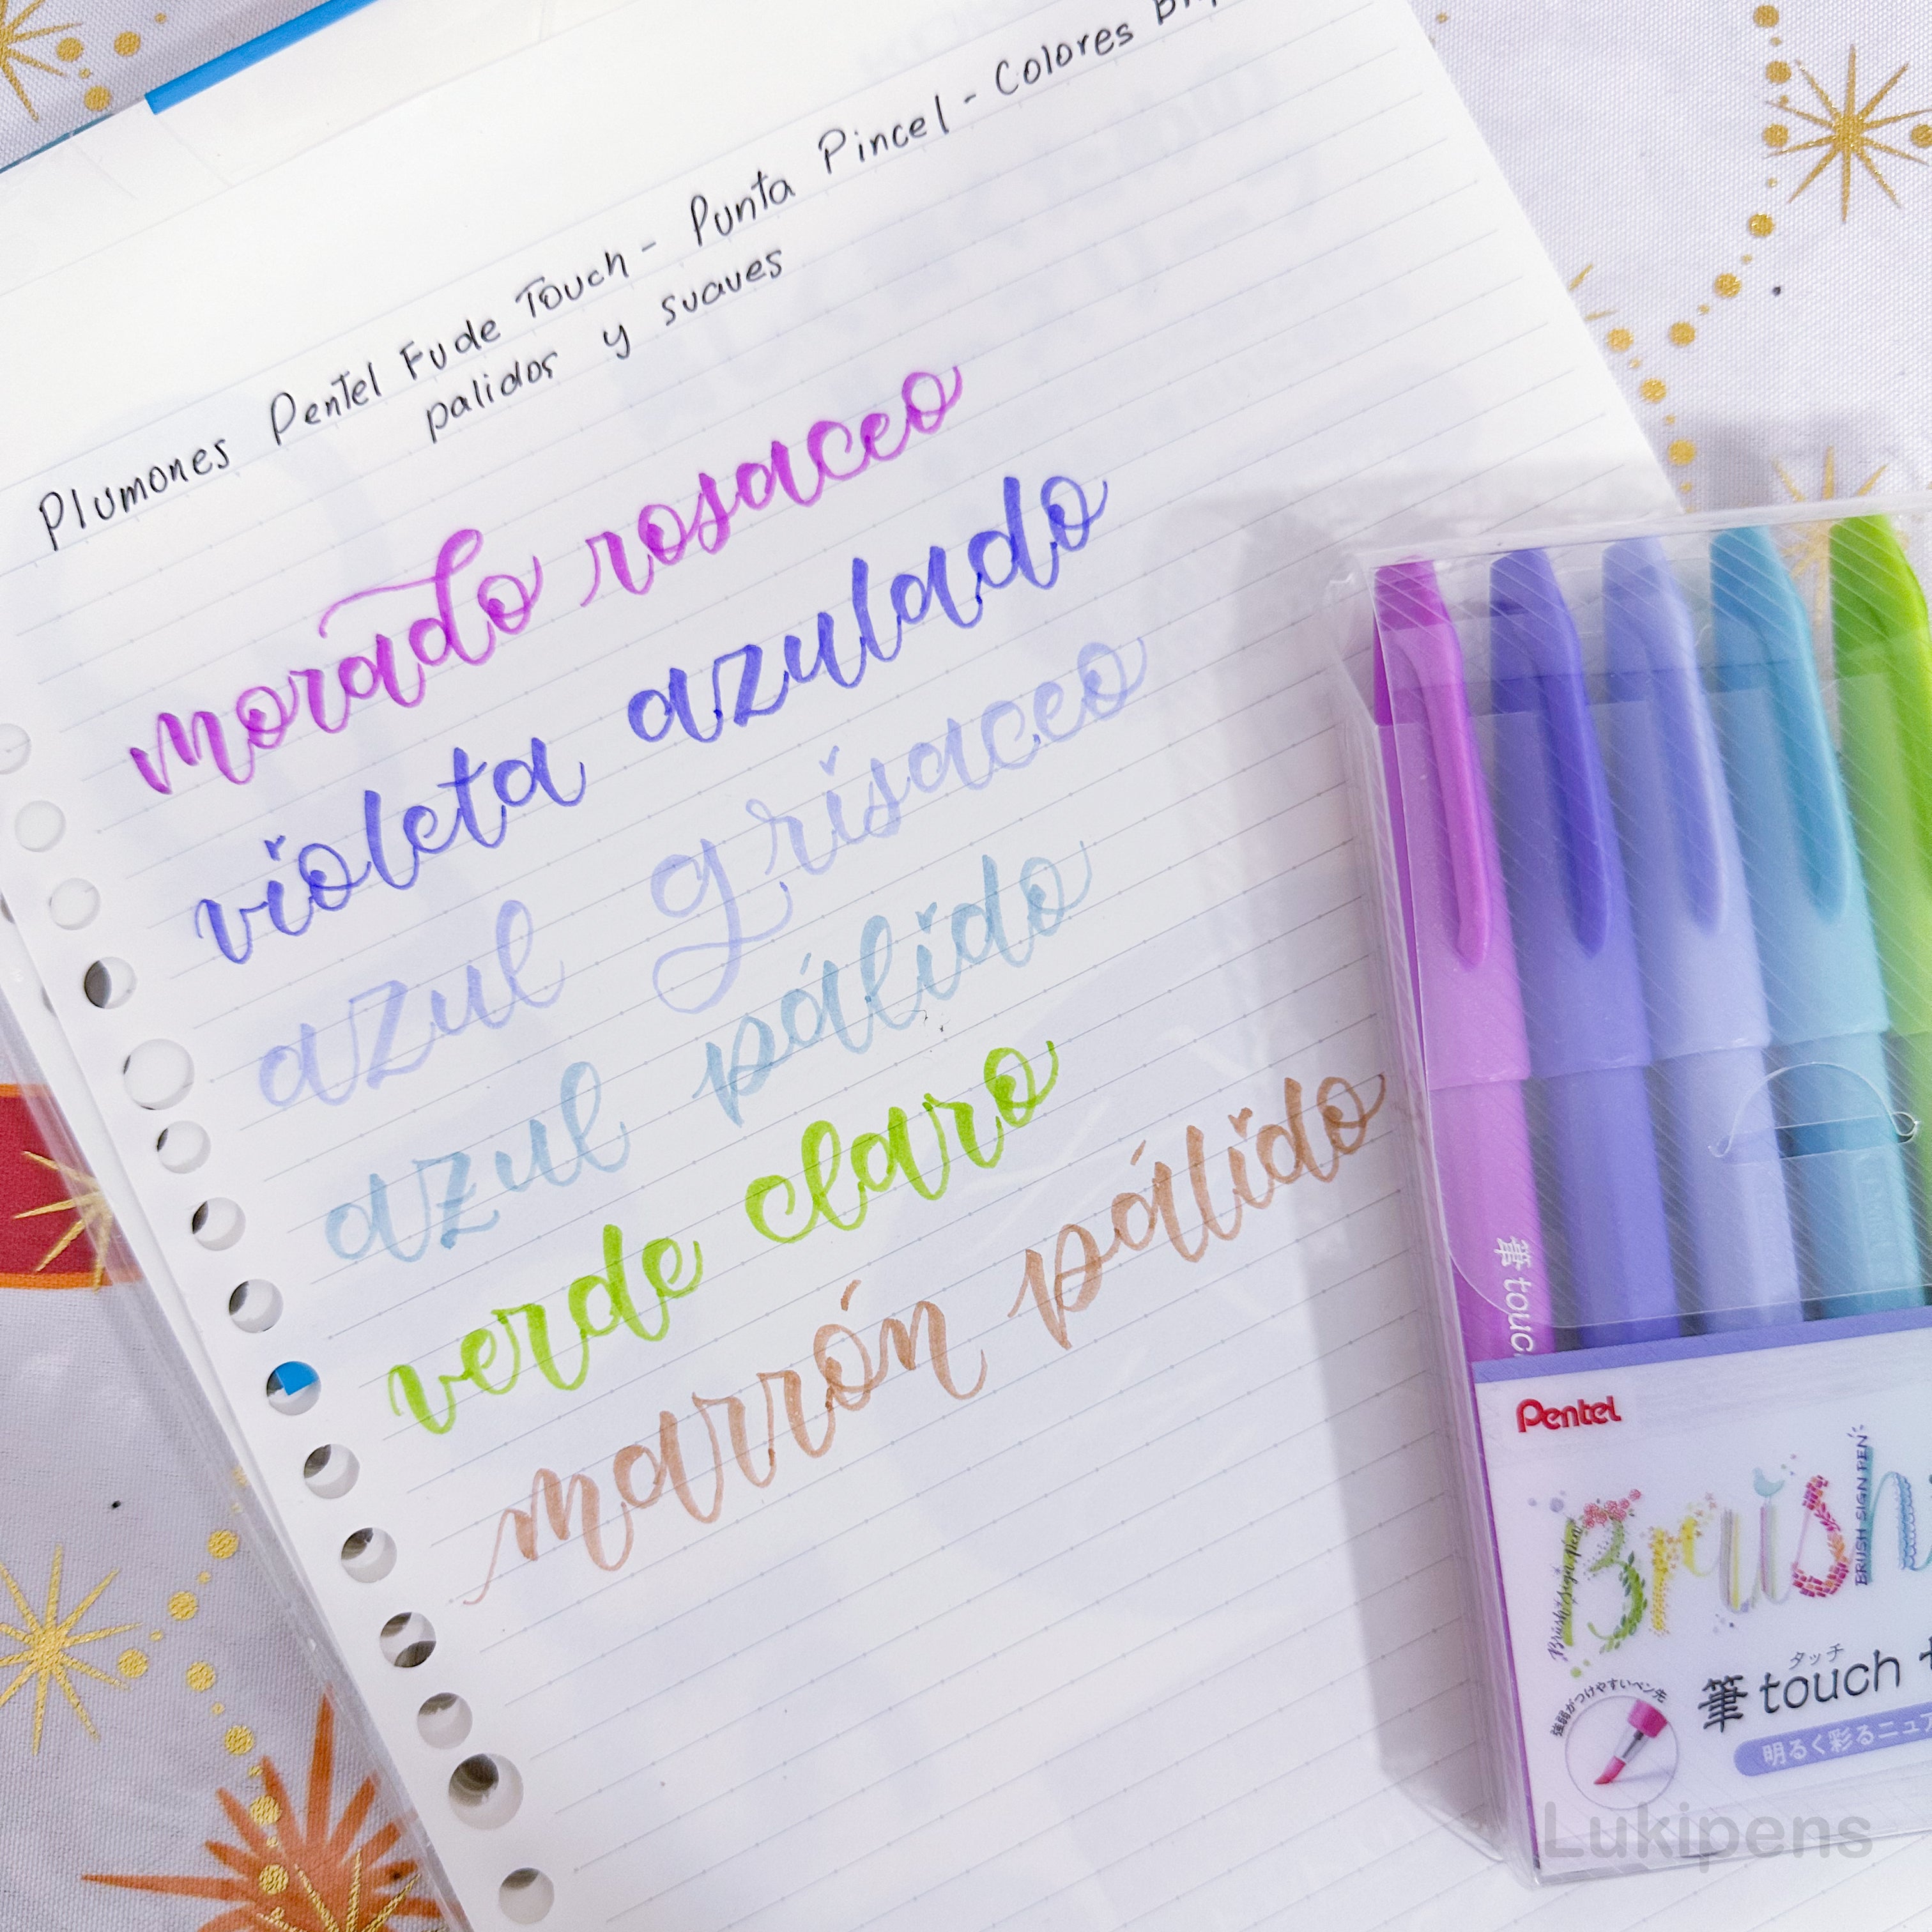 Plumones Pentel Fude Touch - Punta Pincel - Colores
palidos y suaves
morado rosaceo
violeta azulado
azul grisaceo
azul pálido
verde claro
marrón pálido
筆touch
Pentel
Brush
Brush Sign Pen
BRUSH SIGN PEN
タッチ
筆touch
強弱がつけやすいペン先
明るく彩るニュア
Lukipens